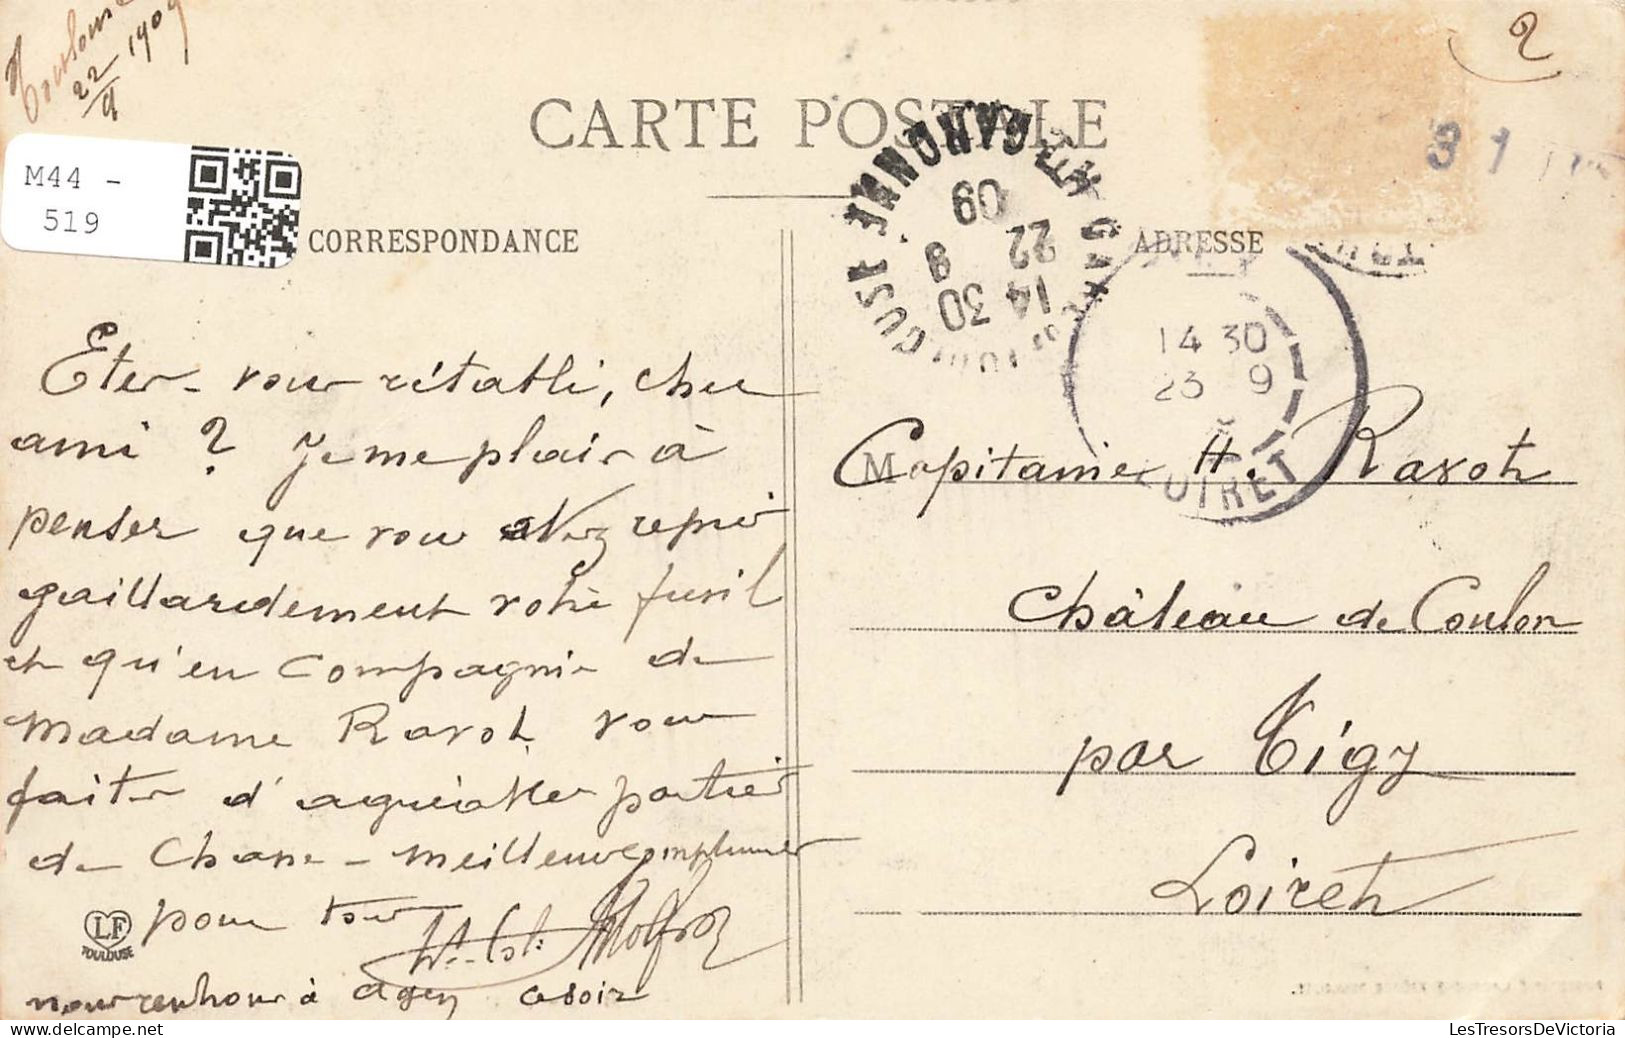 Toulouse
22/9 1909
2
M44 -
519
CARTE POSTALE
CORRESPONDANCE
ADRESSE
GARONNE
09
22 9
14 30
14 30
23 9
LOIRET
31
Etes-vous rétabli, cher
ami ? Je me plais à
penser que vous avez repris
gaillardement votre fusil
et qu'en compagnie de
Madame Ravot vous
faites d'agréables parties
de chasse - meilleurs compliments
pour tous
nous rentrons à Agen ce soir
M
Capitaine H. Ravot
Château de Coulon
par Tigy
Loiret
LF
TOULOUSE
LesTresorsDeVictoria.com